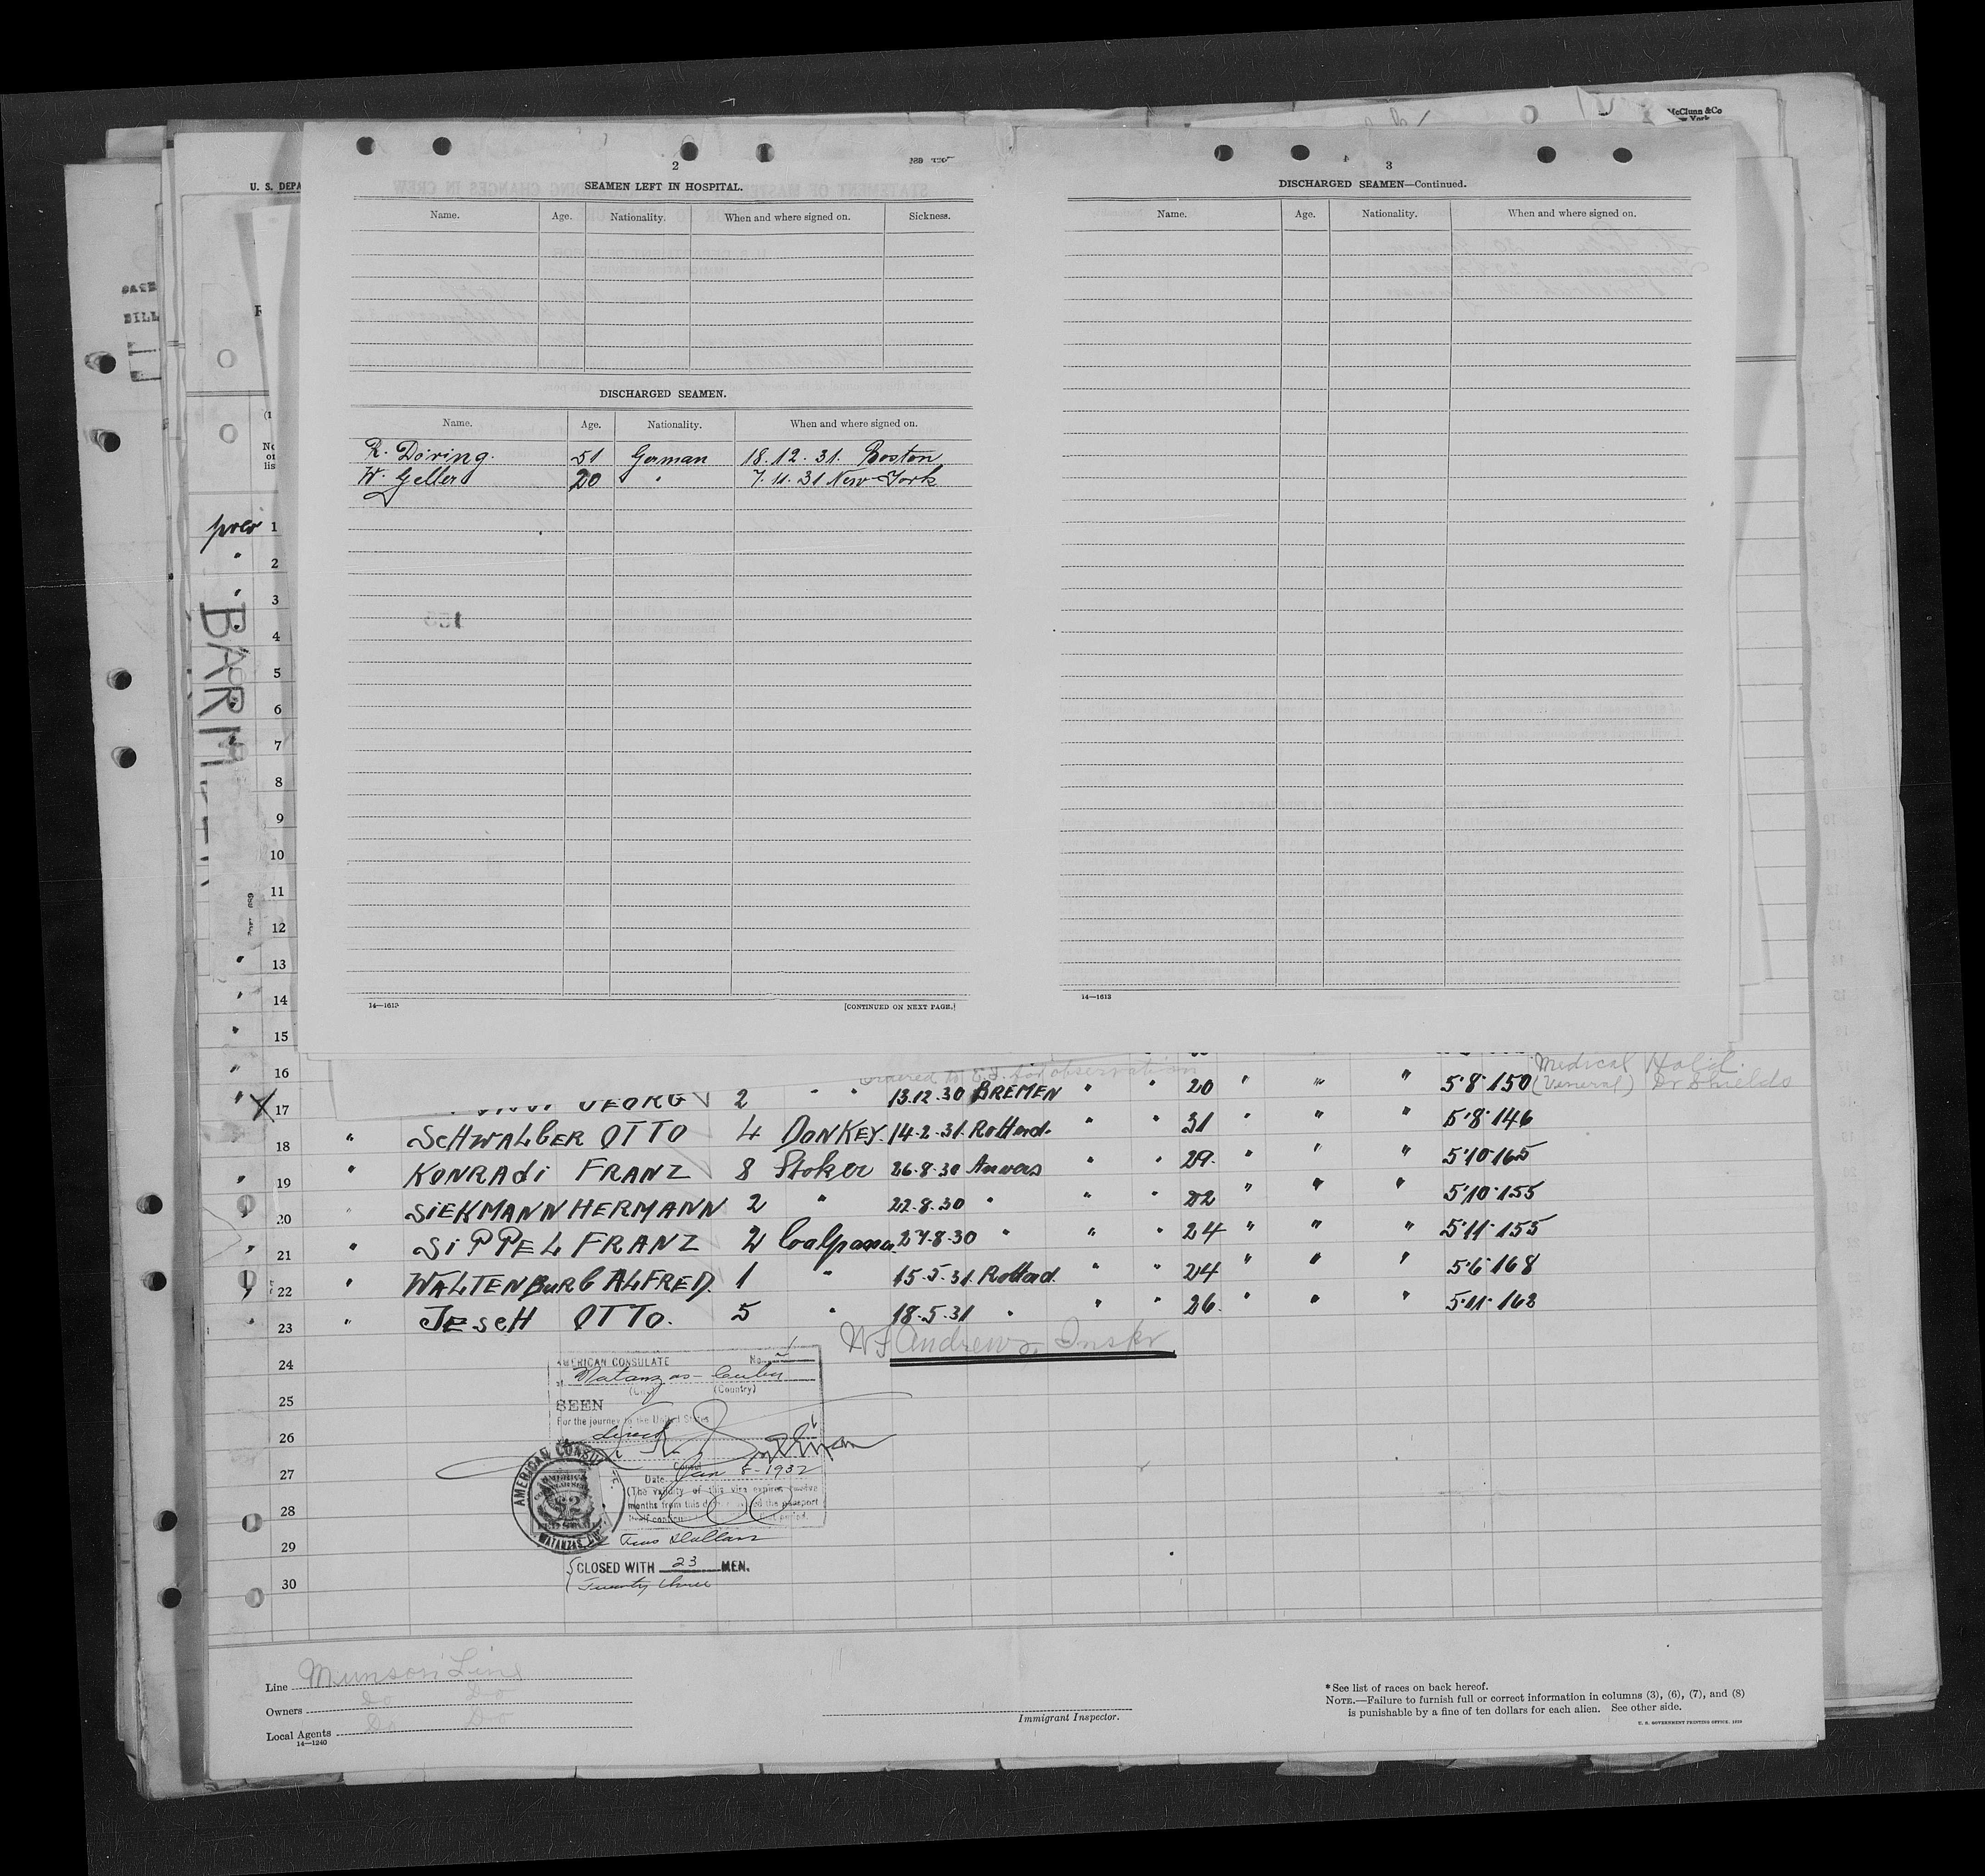 McClunn & Co
New York
U. S. DEPA
2
SEAMEN LEFT IN HOSPITAL.
Name. Age. Nationality. When and where signed on. Sickness.
DISCHARGED SEAMEN.
Name. Age. Nationality. When and where signed on.
R. Döring. 51 German 18.12.31. Boston
W. Geller 20 " 7.11.31 New-York
14—1613
[CONTINUED ON NEXT PAGE.]
3
DISCHARGED SEAMEN—Continued.
Name. Age. Nationality. When and where signed on.
14—1613
BILL
prev 1
" 2
" 3
4
5
6
7
8
9
10
11
12
" 13
" 14
" 15
" 16
ordered to E.I. for observation
Medical Hold.
" X 17 GEORG 2 " " 13.12.30 BREMEN " " 20 " " " 5'8" 150 (Veneral) Dr Shields
18 " SCHWALBER OTTO 4 DONKEY. 14.2.31. Rotterd. " " 31 " " " 5'8" 146
" 19 " KONRADI FRANZ 8 Stoker 26.8.30 Anvers " " 29. " " " 5'10" 165
20 " SIEKMANN HERMANN 2 " 22.8.30 " " " 22 " " " 5'10" 155
" 21 " SIPPEL FRANZ 2 27.8.30 " " " 24 " " " 5'11" 155
22 " WALTENBURG ALFRED. 1 " 15.5.31. Rotterd. " " 24 " " " 5'6" 168
" 23 " JESCH OTTO. 5 " 18.5.31 " " " 26. " " " 5'11" 162
W F Andrews, Inspr
24
25
26
27
28
29
30
AMERICAN CONSULATE No.
at Matanzas - Cuba
(City) (Country)
SEEN
For the journey to the United States
direct
Consul
Date Jan 8-1932
(The validity of this visa expires twelve
months from this date
AMERICAN CONSUL
MATANZAS, CU
$2
Two Dollars
CLOSED WITH 23 MEN.
Twenty three
Line Munson Line
Owners Do Do
Local Agents Do Do
14—1240
Immigrant Inspector.
* See list of races on back hereof.
NOTE.—Failure to furnish full or correct information in columns (3), (6), (7), and (8)
is punishable by a fine of ten dollars for each alien. See other side.
U. S. GOVERNMENT PRINTING OFFICE